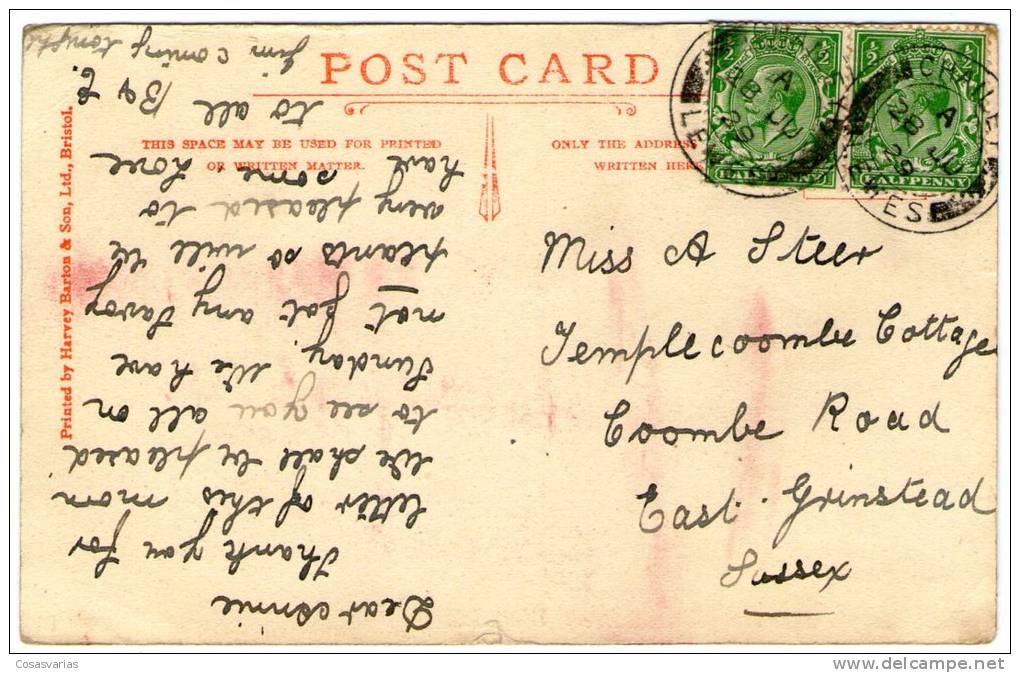 POST CARD
THIS SPACE MAY BE USED FOR PRINTED
OR WRITTEN MATTER.
ONLY THE ADDRESS
WRITTEN HERE
Printed by Harvey Barton & Son, Ltd., Bristol.
HALFPENNY
HALFPENNY
CHAILEY
LEWES
A
28 JU
29
Miss A Steer
Templecoombe Cottage
Coombe Road
East Grinstead
Sussex
Dear Annie
Thank you for
letter of this morn
We shall be pleased
to see you all on
Sunday. We have
not got any Savoy
plants so will be
very pleased to
have some Love
to all B
Jim coming tonight
Cosasvarias
www.delcampe.net